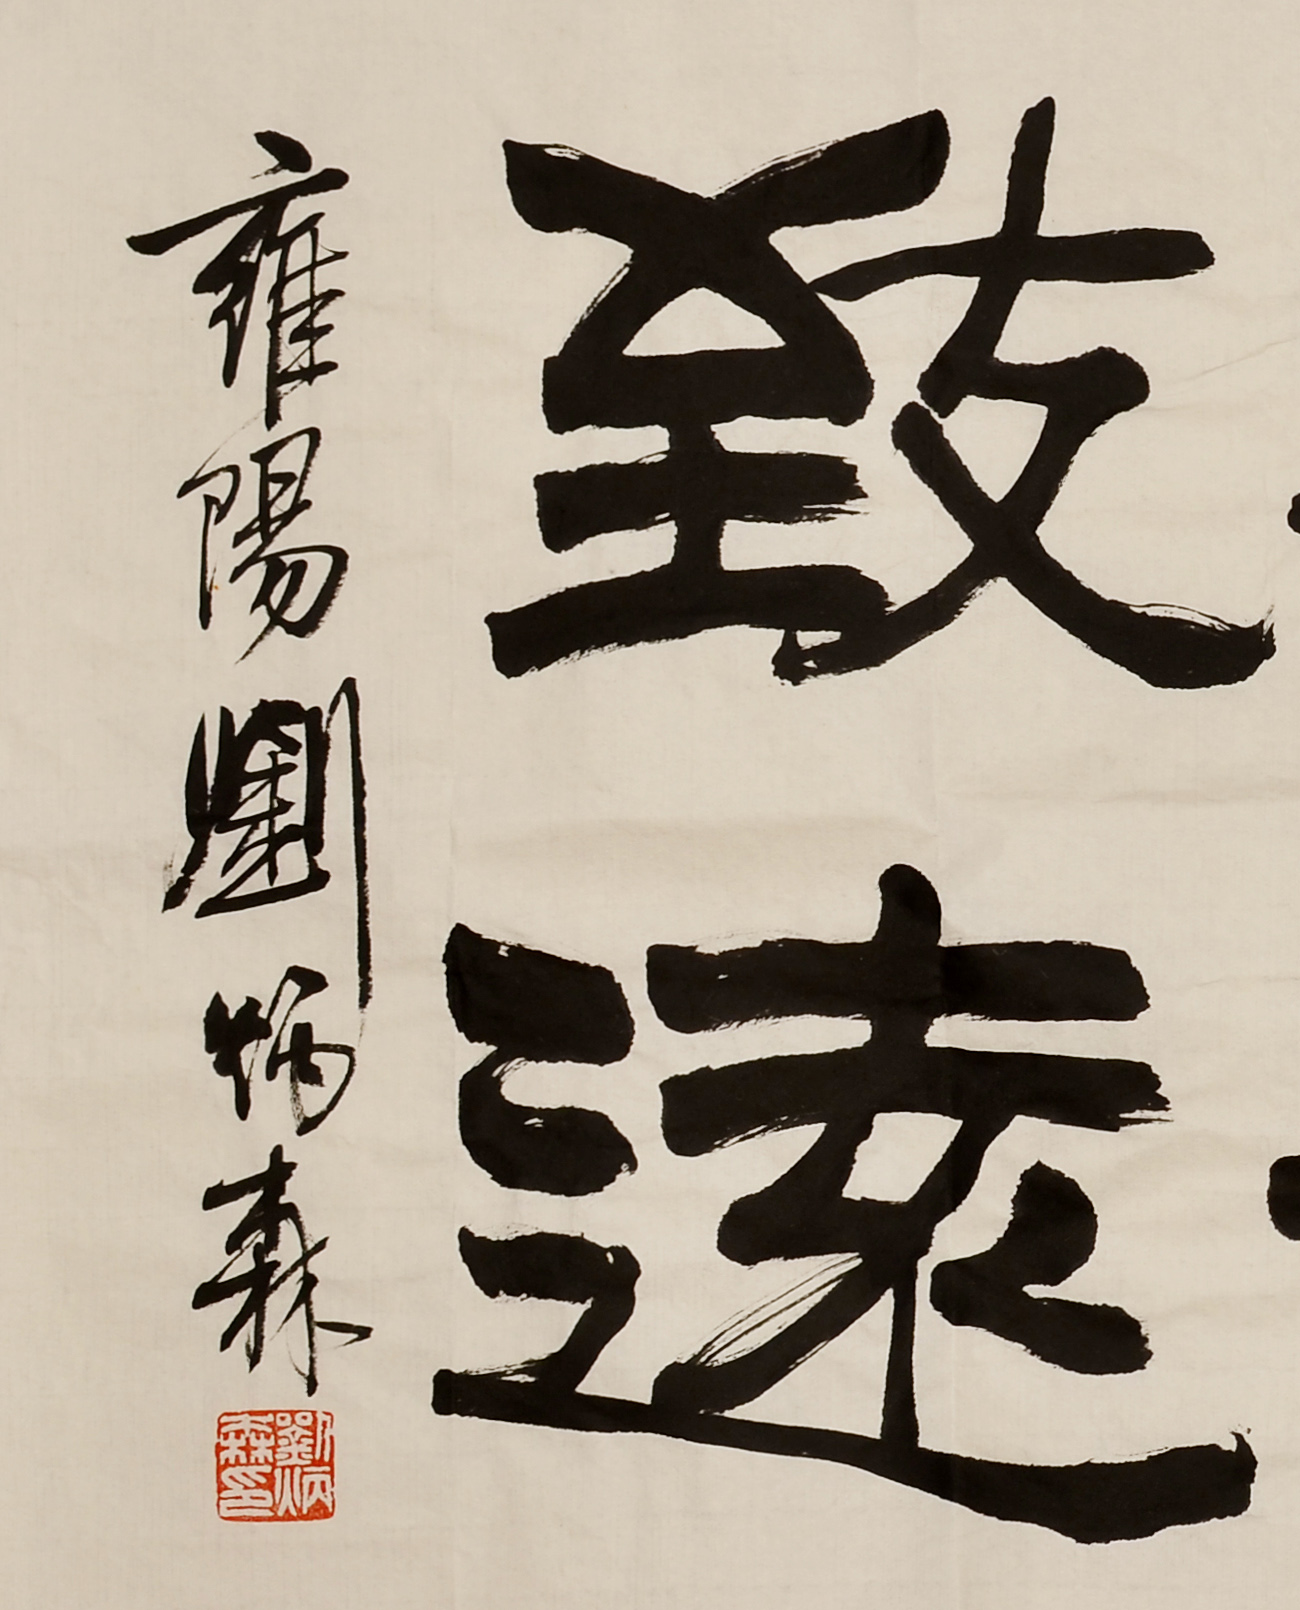 致遠
雍陽劉炳森
劉炳森印